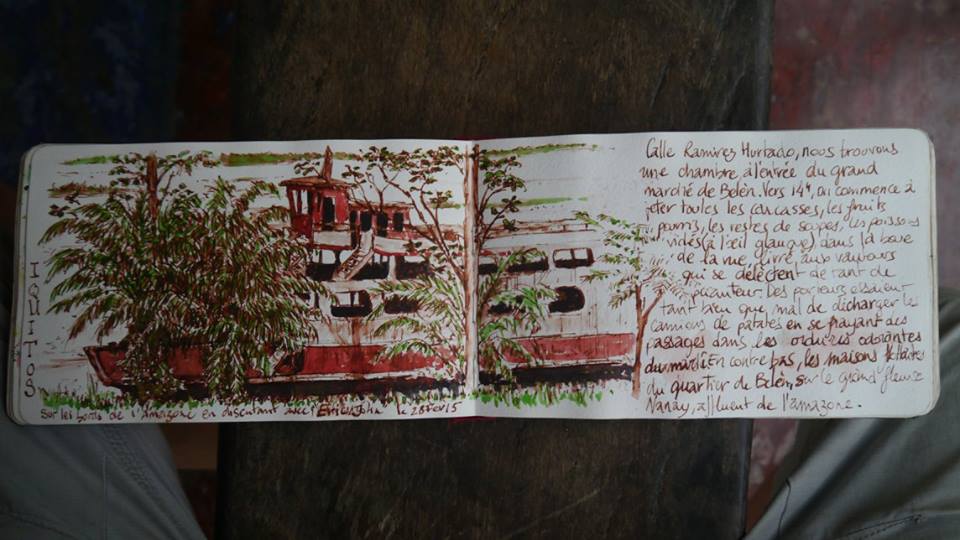 IQUITOS
Calle Ramirez Hurtado, nous trouvons
une chambre à l'entrée du grand
marché de Belén. Vers 14h, on commence à
jeter toutes les carcasses, les fruits
pourris, les restes de soupes, les poissons
vidés (à l'œil glauque) dans la boue
de la rue, livrée aux vautours
qui se délectent de tant de
puanteur. Des porteurs essaient
tant bien que mal de dicharger les
camions de patates en se frayant des
passages dans les ordures odorantes
du marché. En contre bas, les maisons flottantes
du quartier de Belén, sur le grand fleuve
Nanay, affluent de l'amazone.
Sur les bords de l'Amazone en discutant avec John le 28 fev 15